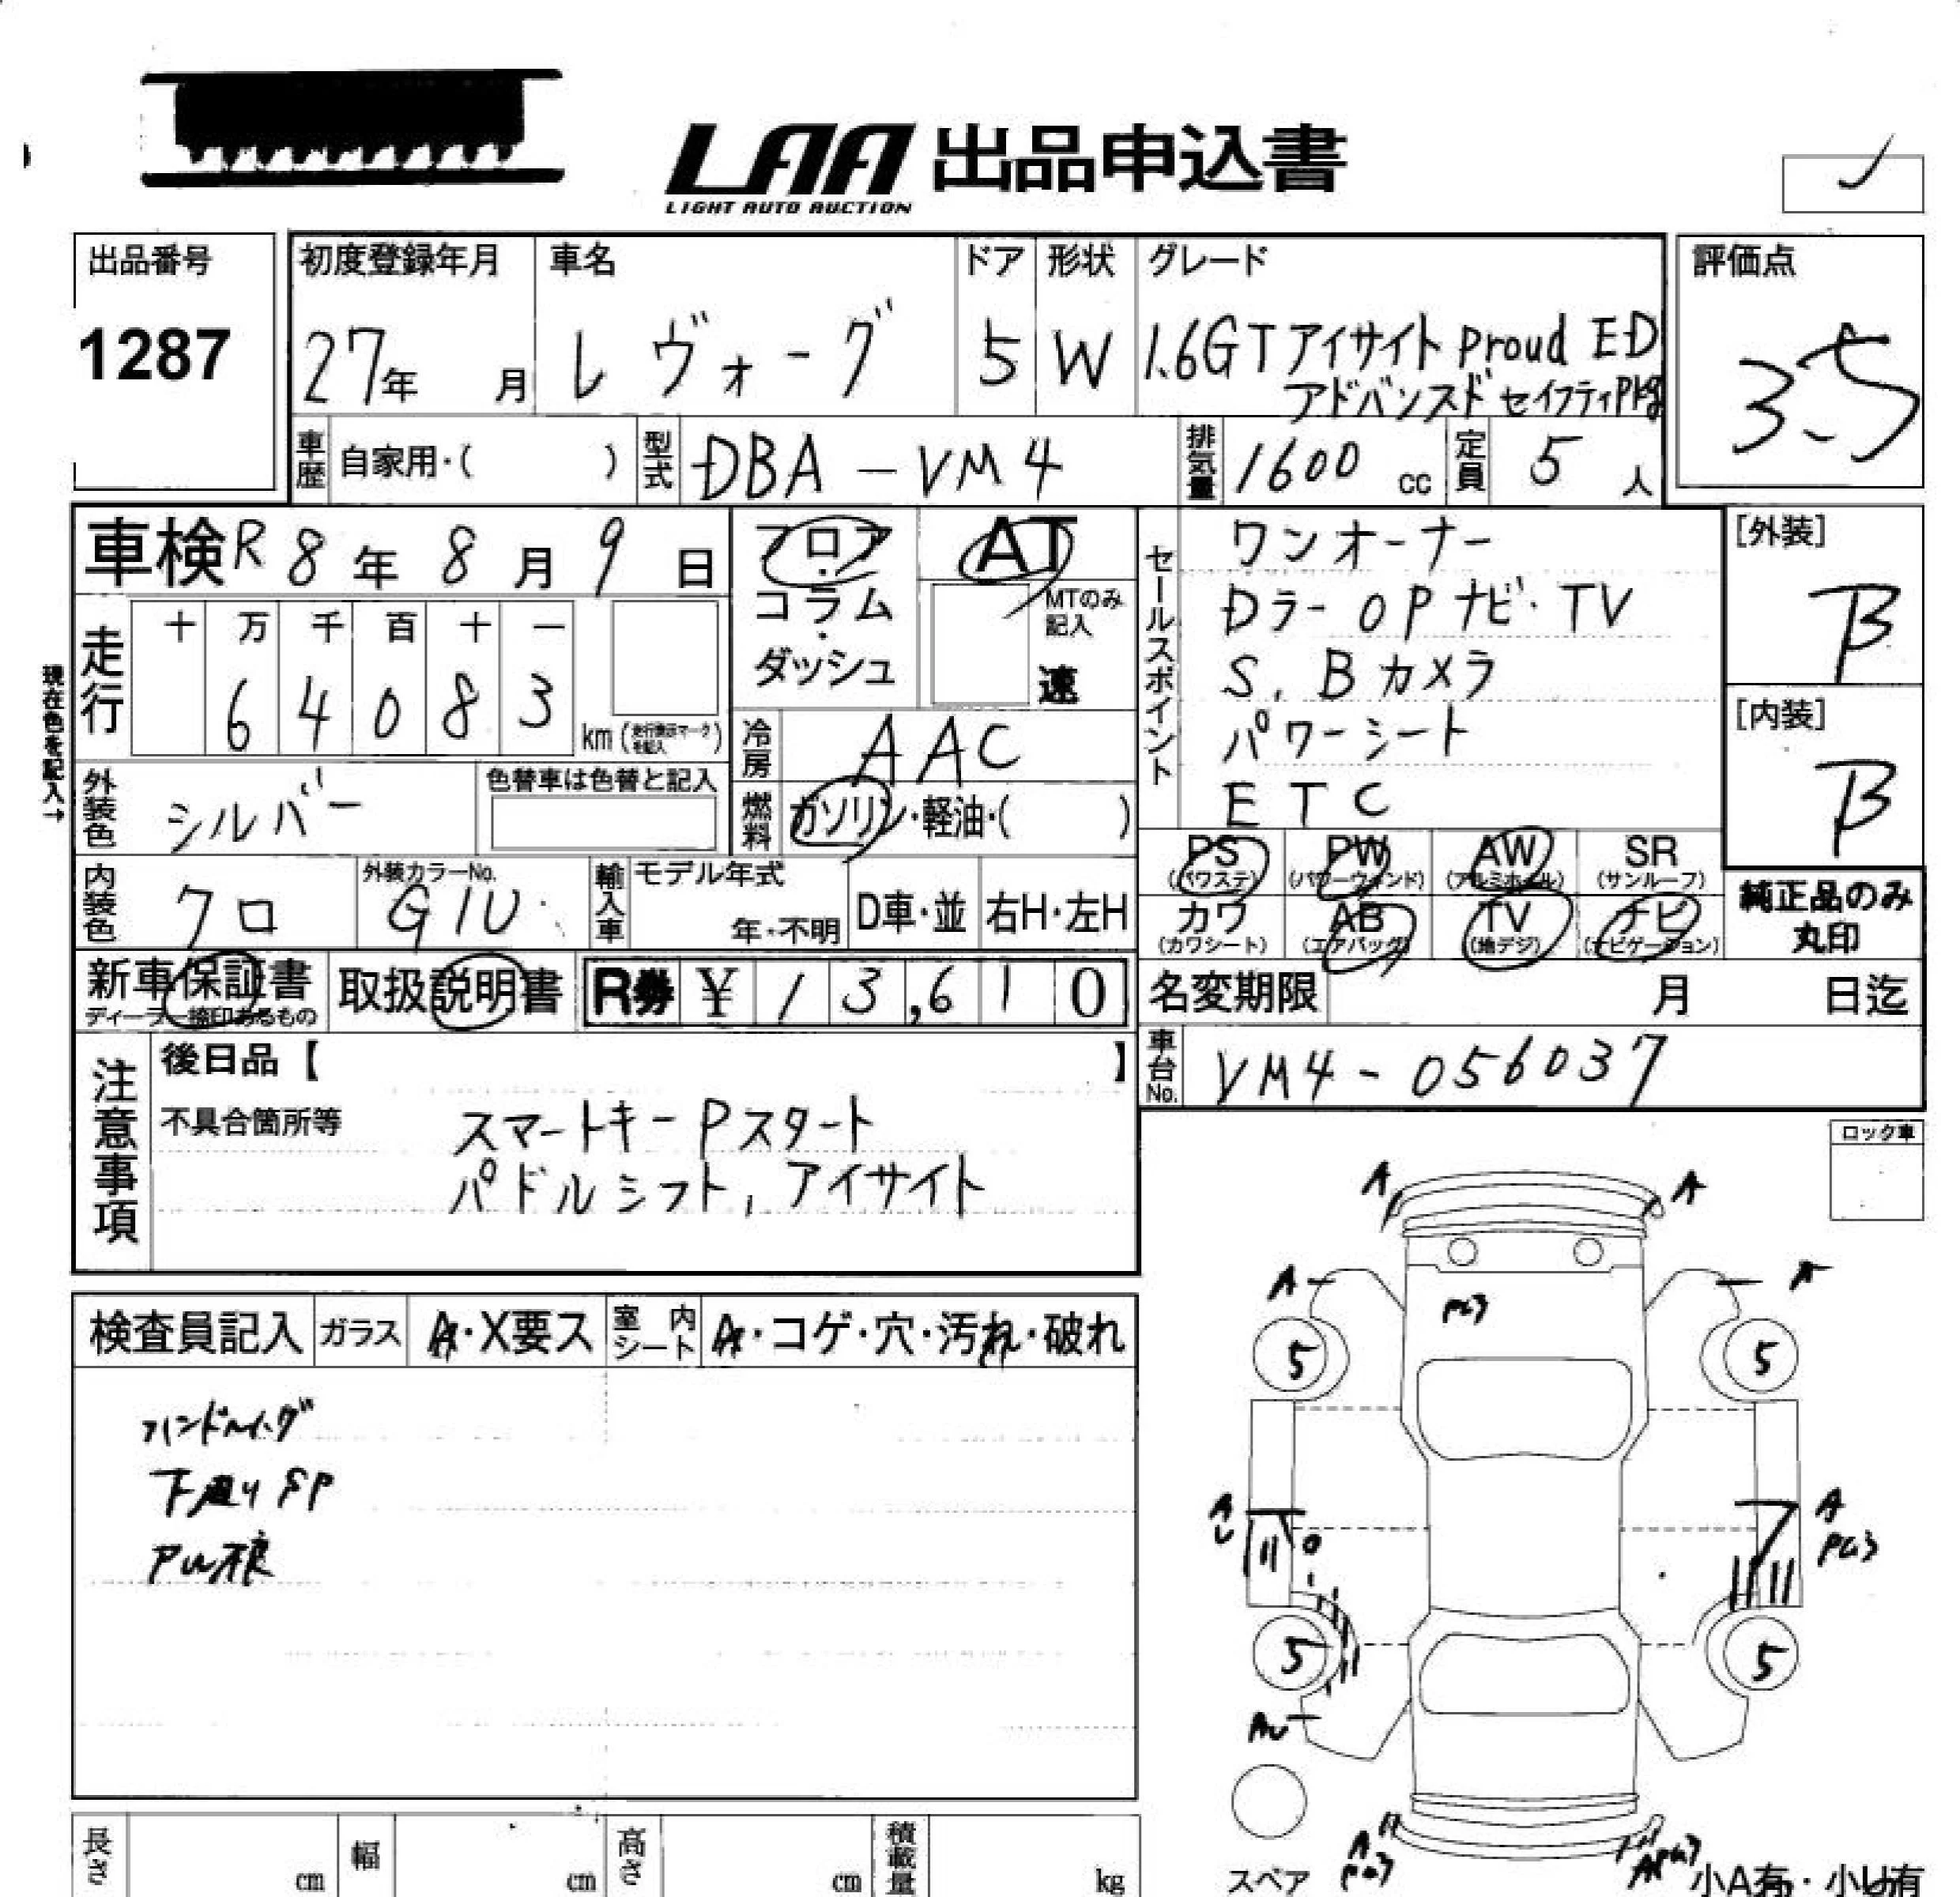 LAA 出品申込書
LIGHT AUTO AUCTION
出品番号
1287
初度登録年月
27年 月
車名
レヴォーグ
ドア
5
形状
W
グレード
1.6GTアイサイト Proud ED
アドバンスドセイフティPkg
評価点
3.5
車歴 自家用・( )
型式 DBA-VM4
排気量 1600 cc
定員 5 人
車検 R8年8月9日
フロア・コラム・ダッシュ
AT
MTのみ記入
速
現在色を記入→
走行
十 万 千 百 十 一
6 4 0 8 3
km
冷房 AAC
燃料 ガソリン・軽油・( )
外装色 シルバー
色替車は色替と記入
内装色 クロ
外装カラーNo. G1U
輸入車
モデル年式
年・不明
D車・並
右H・左H
セールスポイント
ワンオーナー
Dラー OPナビ・TV
S,Bカメラ
パワーシート
ETC
[外装]
B
[内装]
B
PS (パワステ)
PW (パワーウィンド)
AW (アルミホイール)
SR (サンルーフ)
カワ (カワシート)
AB (エアバッグ)
TV (地デジ)
ナビ (ナビゲーション)
純正品のみ
丸印
新車保証書
ディーラー捺印あるもの
取扱説明書
R券 ¥ 13,610
名変期限 月 日迄
車台No. VM4-056037
注意事項
後日品【 】
不具合箇所等
スマートキー Pスタート
パドルシフト,アイサイト
ロック車
検査員記入
ガラス A・X要ス
室内シート A・コゲ・穴・汚れ・破れ
下廻りSP
A
A
A
A
PG3
5
5
A
U
A
PG3
5
5
AU
A
PG3
APG3
スペア
小A有・小U有
長さ cm
幅 cm
高さ cm
積載量 kg